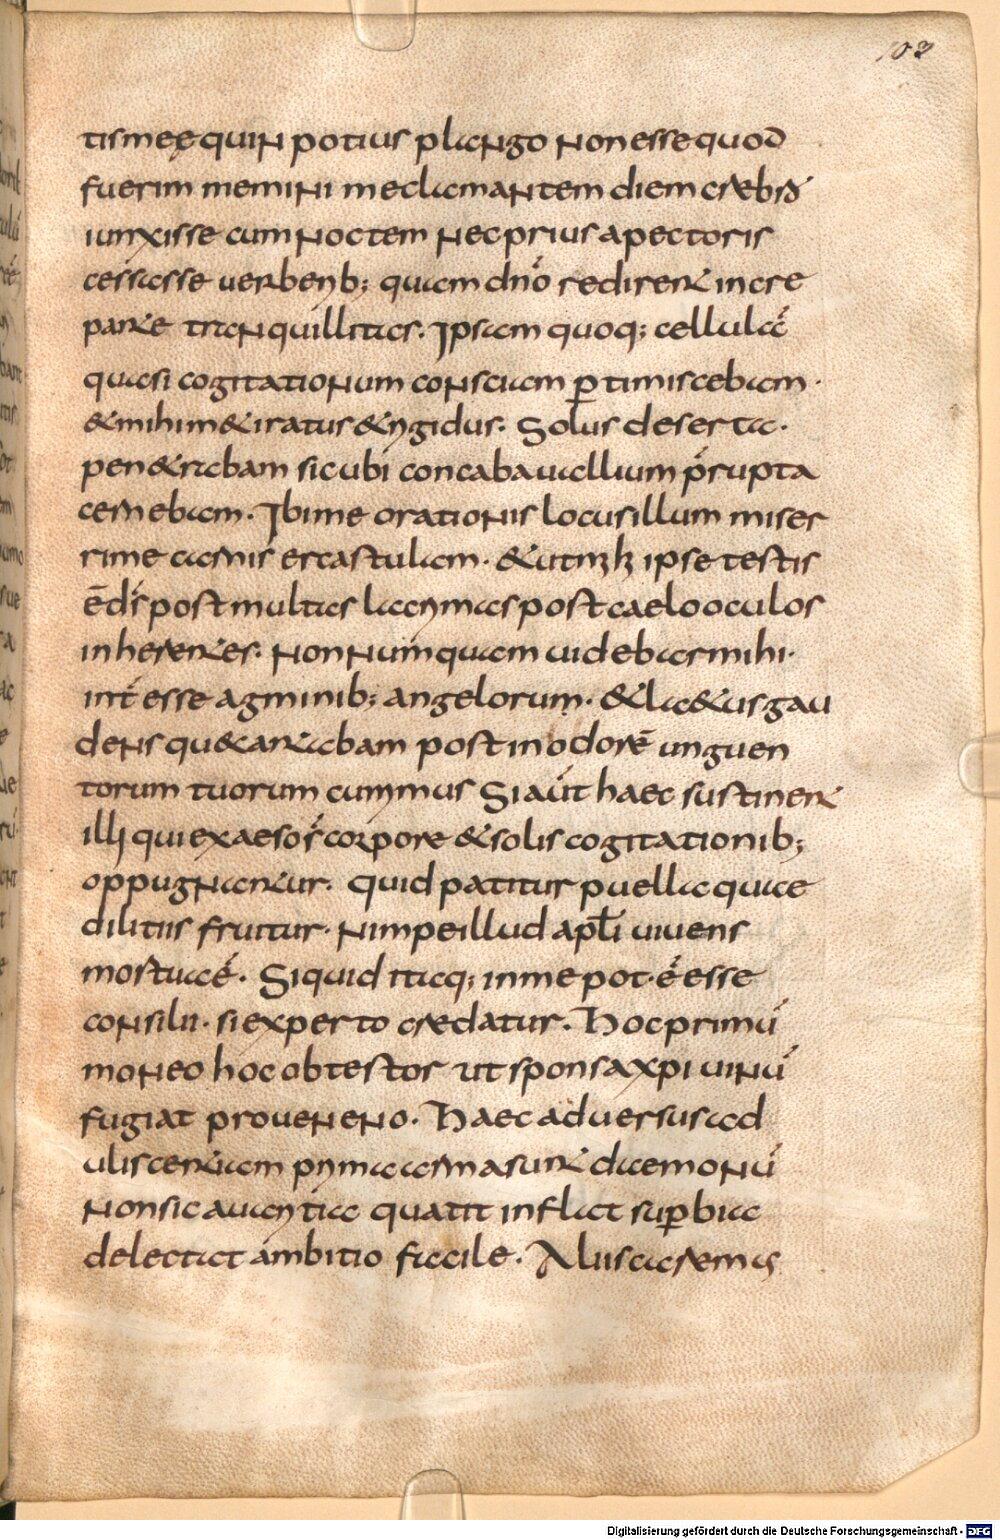 103
tismeę quin potius plango non esse quod
fuerim memini me clamantem diem crebro
iunxisse cum nocte nec prius a pectoris
cessasse uerberib; quam dn̄o rediret incre
pante tranquillitas. Ipsam quoq; cellulā
quasi cogitationum consciam ꝑtimiscebam.
& mihim& iratus & rigidus. Solus deserta.
pen&rabam sicubi concaba uallium p̄rupta
cernebam. Ibi me orationis locus illum miser
rime carnis ercastulam. & ut mihi ipse testis
ē ds̄ post multas lacrymas post caelo oculos
inherentes. Non numquam uidebar mihi.
int̄ esse agminib; angelorum. & la&us gau
dens qu& cantabam post in odorē unguen
torum tuorum currimus Si aūt haec sustinent
illi qui exaeso s̄ corpore & solis cogitationib;
oppugnantur. quid patitur puella quae
dilitiis fruitur. Nimpe illud apl̄i uiuens
mortua ē. Si quid itaq; in me pot.ē esse
consilii. si experto credatur. Hoc primū
moneo hoc obtestor ut sponsa xpi uinū
fugiat pro ueneno. Haec aduersus ad
uliscentiam prima arma sunt daemonū
Non sic auaritia quatit inflat suꝑbia
delectat ambitio facile. Aliis caremus
Digitalisierung gefördert durch die Deutsche Forschungsgemeinschaft - DFG